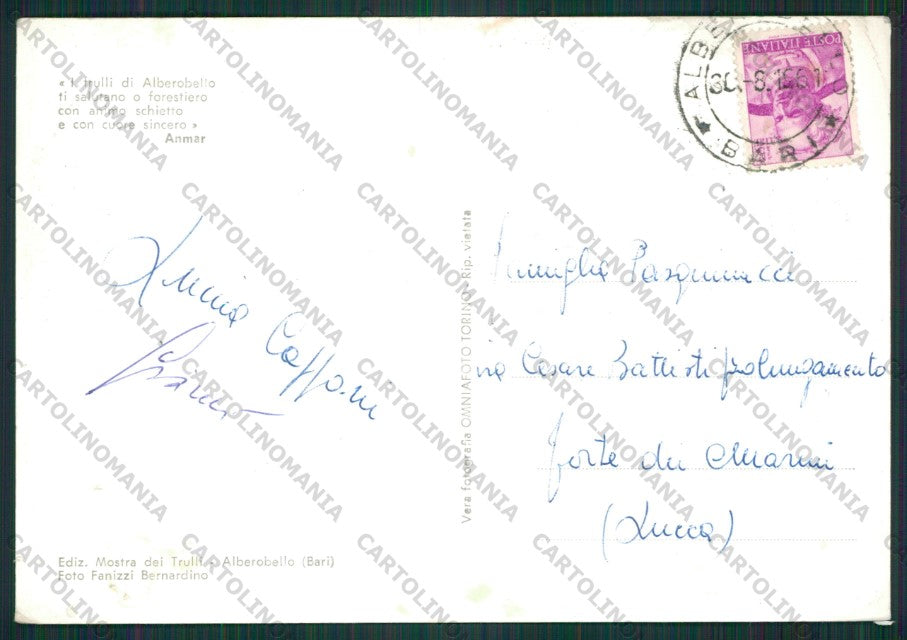 « I trulli di Alberobello
ti salutano o forestiero
con animo schietto
e con cuore sincero »
Anmar
POSTE ITALIANE
ALBEROBELLO
BARI
Vera fotografia OMNIAFOTO TORINO - Rip. vietata
Famiglia Pasquinucci
via Cesare Battisti prolungamento
Forte dei Marmi
(Lucca)
Caffani
Ediz. Mostra dei Trulli - Alberobello (Bari)
Foto Fanizzi Bernardino
CARTOLINOMANIA